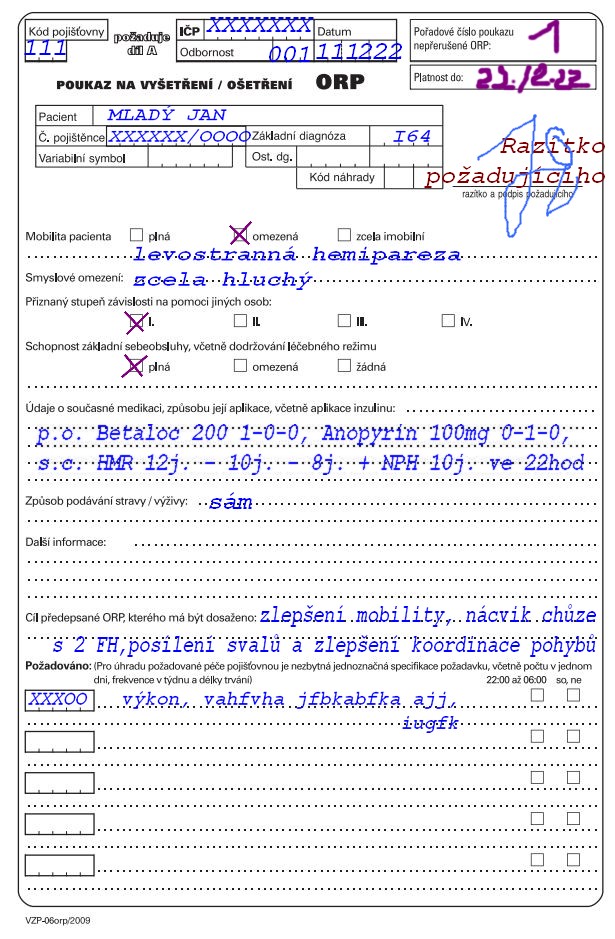 Kód pojišťovny
111
požaduje
díl A
IČP XXXXXXXX Datum
Odbornost 001 111222
Pořadové číslo poukazu
nepřerušené ORP: 1
Platnost do: 22./2.22
POUKAZ NA VYŠETŘENÍ / OŠETŘENÍ ORP
Pacient MLADÝ JAN
Č. pojištěnce XXXXXX/0000 Základní diagnóza I64
Variabilní symbol Ost. dg.
Kód náhrady
Razítko
požadujícího
razítko a podpis požadujícího
Mobilita pacienta plná omezená zcela imobilní
levostranná hemipareza
Smyslové omezení: zcela hluchý
Přiznaný stupeň závislosti na pomoci jiných osob:
I. II. III. IV.
Schopnost základní sebeobsluhy, včetně dodržování léčebného režimu
plná omezená žádná
Údaje o současné medikaci, způsobu její aplikace, včetně aplikace inzulinu:
p.o. Betaloc 200 1-0-0, Anopyrin 100mg 0-1-0,
s.c. HMR 12j. - 10j. - 8j. + NPH 10j. ve 22hod
Způsob podávání stravy / výživy: sám
Další informace:
Cíl předepsané ORP, kterého má být dosaženo: zlepšení mobility, nácvik chůze
s 2 FH,posílení svalů a zlepšení koordinace pohybů
Požadováno: (Pro úhradu požadované péče pojišťovnou je nezbytná jednoznačná specifikace požadavku, včetně počtu v jednom
dni, frekvence v týdnu a délky trvání) 22:00 až 06:00 so, ne
XXXOO výkon, vahfvha jfbkabfka ajj,
iugfk
VZP-06orp/2009